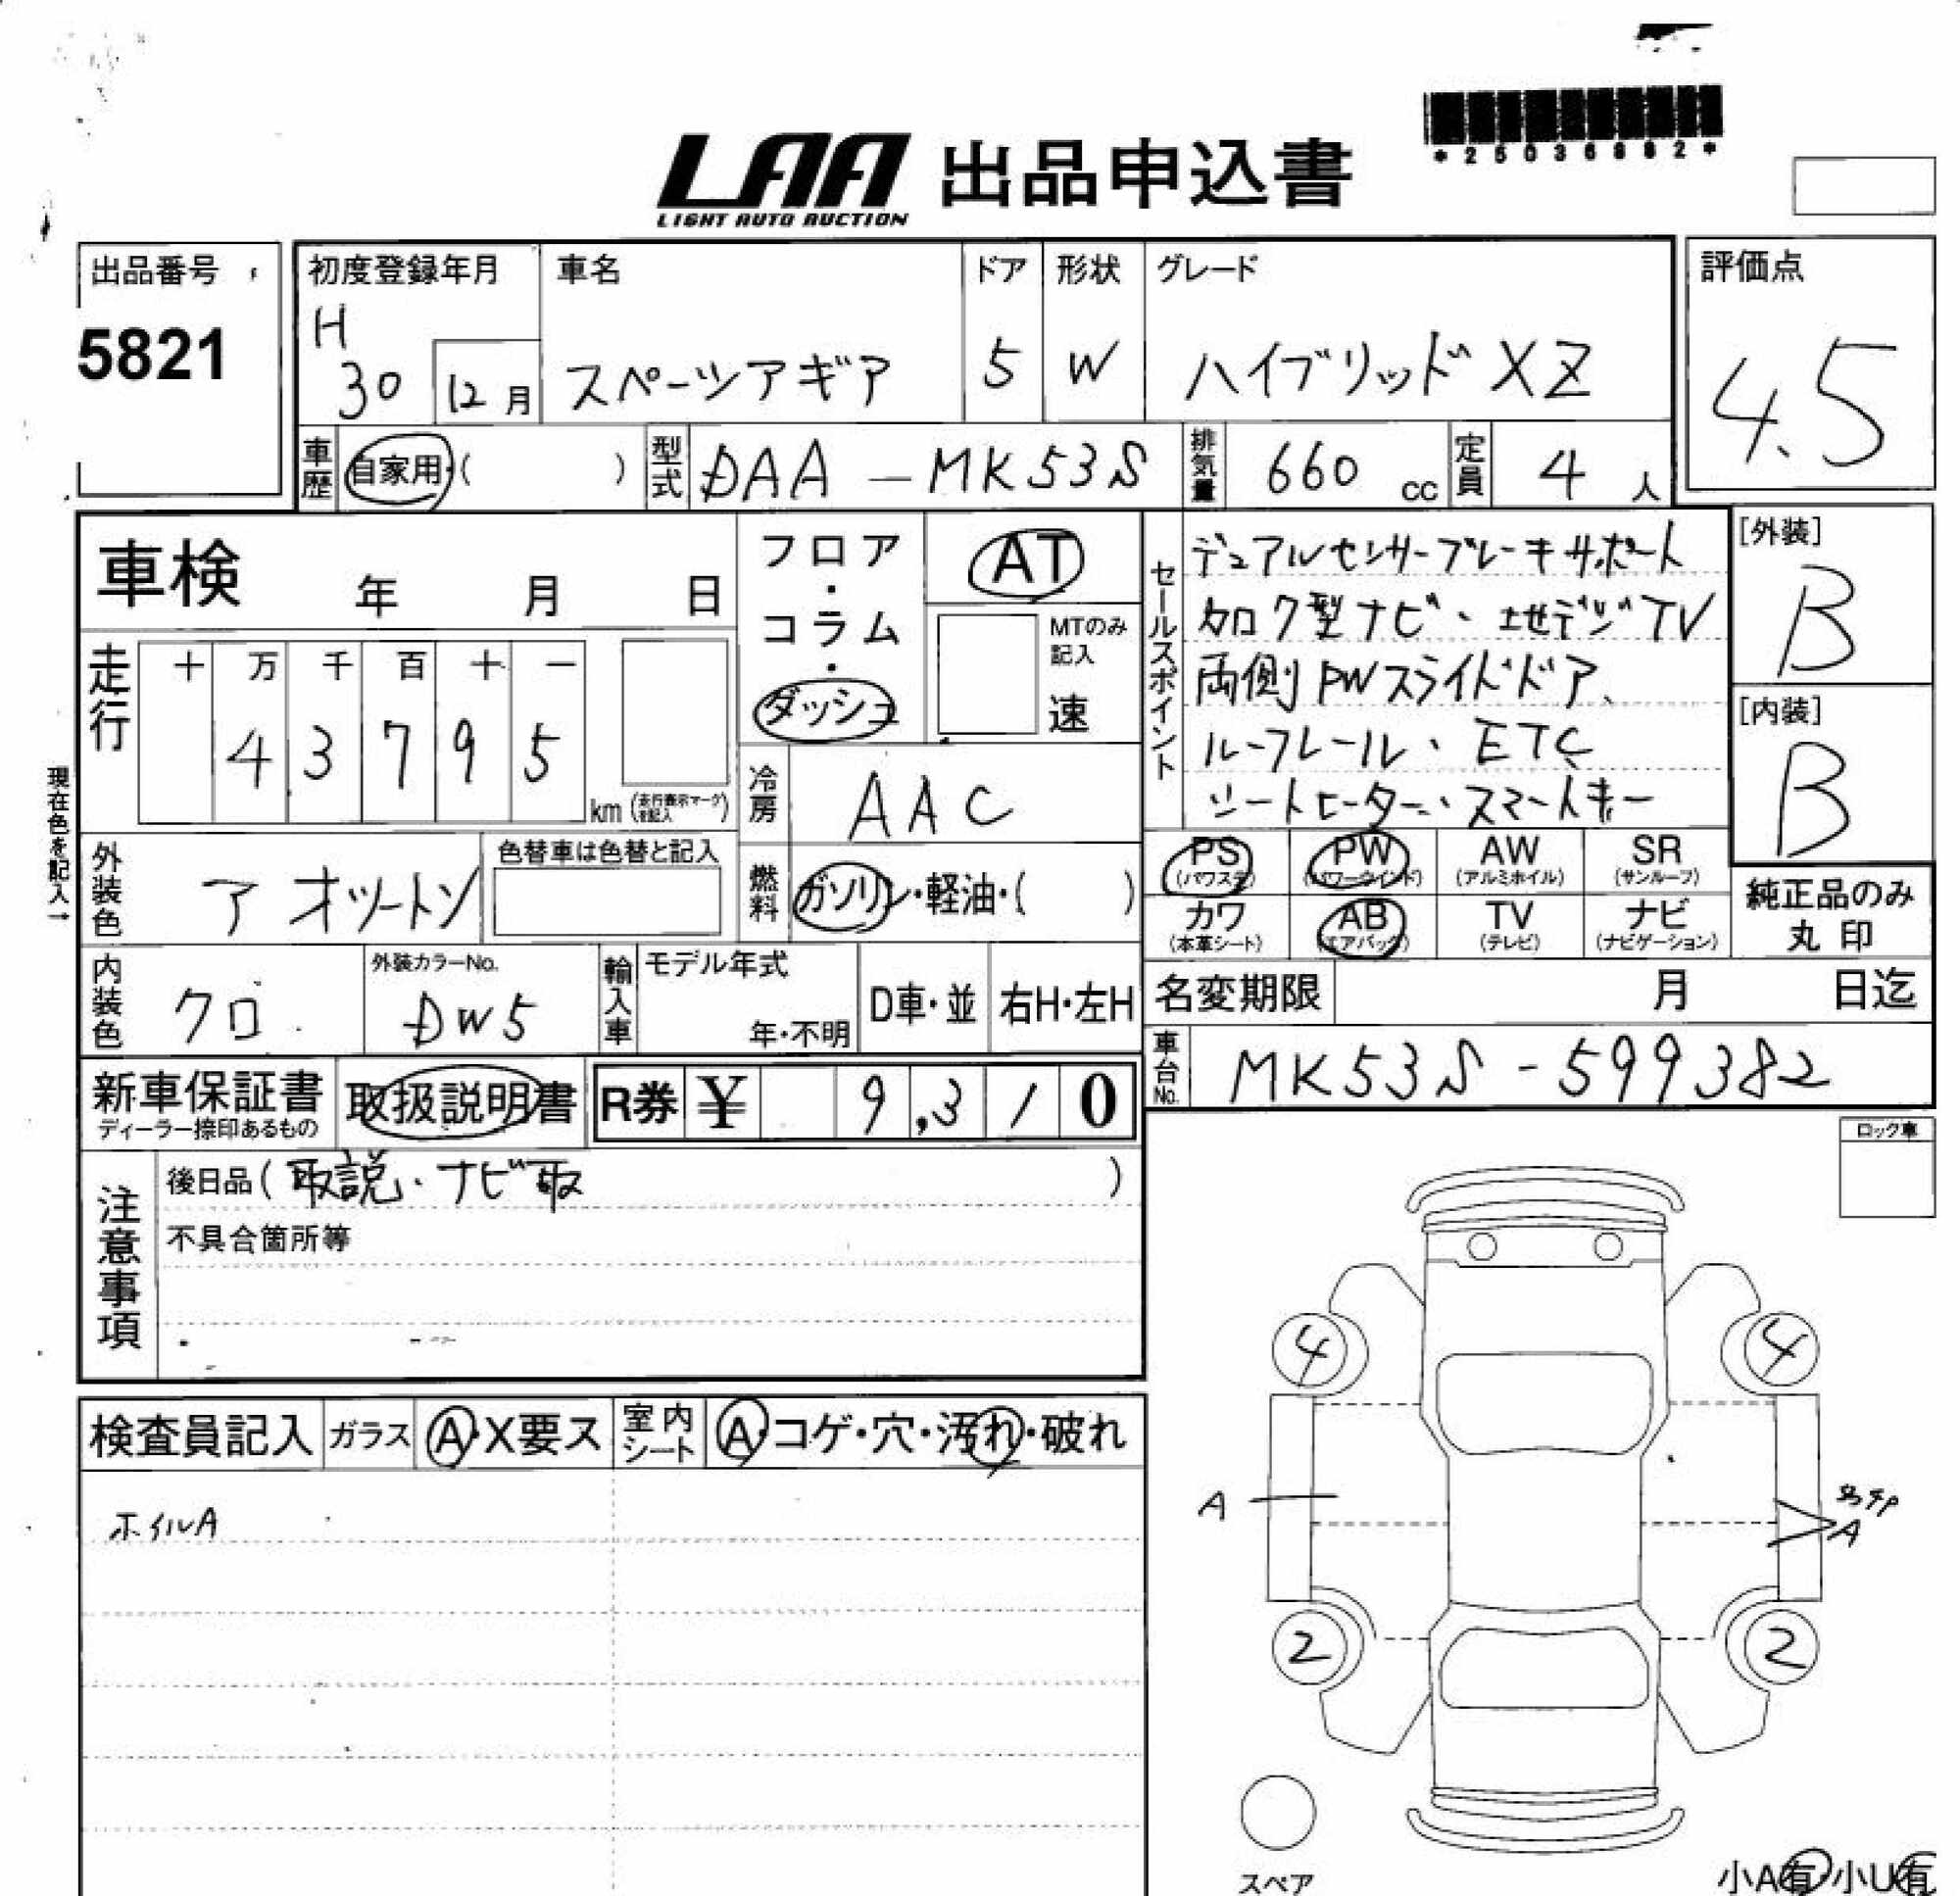 LAA 出品申込書
LIGHT AUTO AUCTION
出品番号
5821
初度登録年月
H
30 12月
車名
スペーシアギア
ドア
5
形状
W
グレード
ハイブリッド XZ
評価点
4.5
車歴 自家用・( )
型式 DAA-MK53S
排気量 660 cc
定員 4 人
車検 年 月 日
フロア・コラム・ダッシュ
AT
MTのみ記入
速
セールスポイント
デュアルセンサーブレーキサポート
カロク型ナビ、地デジTV
両側PWスライドドア、
ルーフレール、ETC
シートヒーター、スマートキー
[外装]
B
[内装]
B
走行
十 万 千 百 十 一
4 3 7 9 5
km (走行表示マークを記入)
冷房 AAC
現在色を記入→
外装色 ア オ ツートン
色替車は色替と記入
燃料 ガソリン・軽油・( )
PS (パワステ) PW (パワーウインド) AW (アルミホイル) SR (サンルーフ)
カワ (本革シート) AB (エアバッグ) TV (テレビ) ナビ (ナビゲーション)
純正品のみ
丸印
内装色 クロ
外装カラーNo.
DW5
輸入車
モデル年式
年・不明
D車・並
右H・左H
名変期限 月 日迄
車台No. MK53S-599382
新車保証書
ディーラー捺印あるもの
取扱説明書
R券 ¥ 9,310
ロック車
注意事項
後日品(取説、ナビ取 )
不具合箇所等
検査員記入 ガラス A・X要ス 室内シート A・コゲ・穴・汚れ・破れ
ホイルA
4 4
A
A
2 2
スペア
小A有 小U有